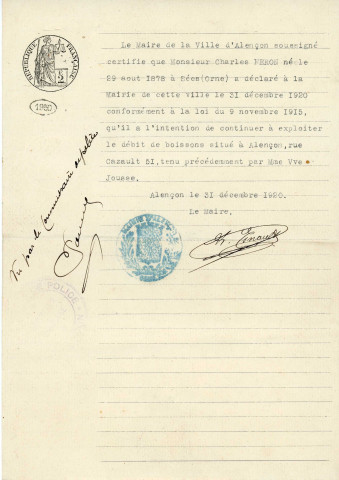 REPUBLIQUE FRANÇAISE
1920
Le Maire de la Ville d'Alençon soussigné
certifie que Monsieur Charles NEROS né le
29 aout 1878 à Sées(Orne) a déclaré à la
Mairie de cette ville le 31 décembre 1920
conformément à la loi du 9 novembre 1915,
qu'il a l'intention de continuer à exploiter
le débit de boissons situé à Alençon, rue
Cazault 51, tenu précédemment par Mme Vve
Jousse.
Alençon le 31 décembre 1920.
Le Maire,
Vu par le Commissaire de police
MAIRIE VILLE
POLICE